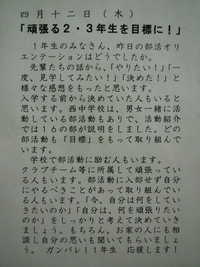 四月十二日（木）
「頑張る２・３年生を目標に！」
１年生のみなさん、昨日の部活オリ
エンテーションはどうでしたか。
先輩たちの話から、「やりたい！」「一
度、見学してみたい！」「決めた！」と
様々な感想をもったと思います。
入学する前から決めていた人もいると
思います。西中学校は、男女一緒に活動
している部活動もありで、活動紹介
では１６の部が説明をしました。どの
部活動も『目標』をもって取り組んで
います。
学校で部活に励む人もいます。
クラブチーム等に所属して頑張ってい
る人もいます。部活動に入部せず自分
にやるべきことがあって取り組んでい
る人もいます。「今、自分は何をしてい
きたいのか」「自分は、何を頑張りたい
のか」をしっかりと考えて決めていきま
しょう。もちろん、お家の人にも相
談し自分の思いも聞いてもらいましょ
う。ガンバレ！１１年生 応援します！